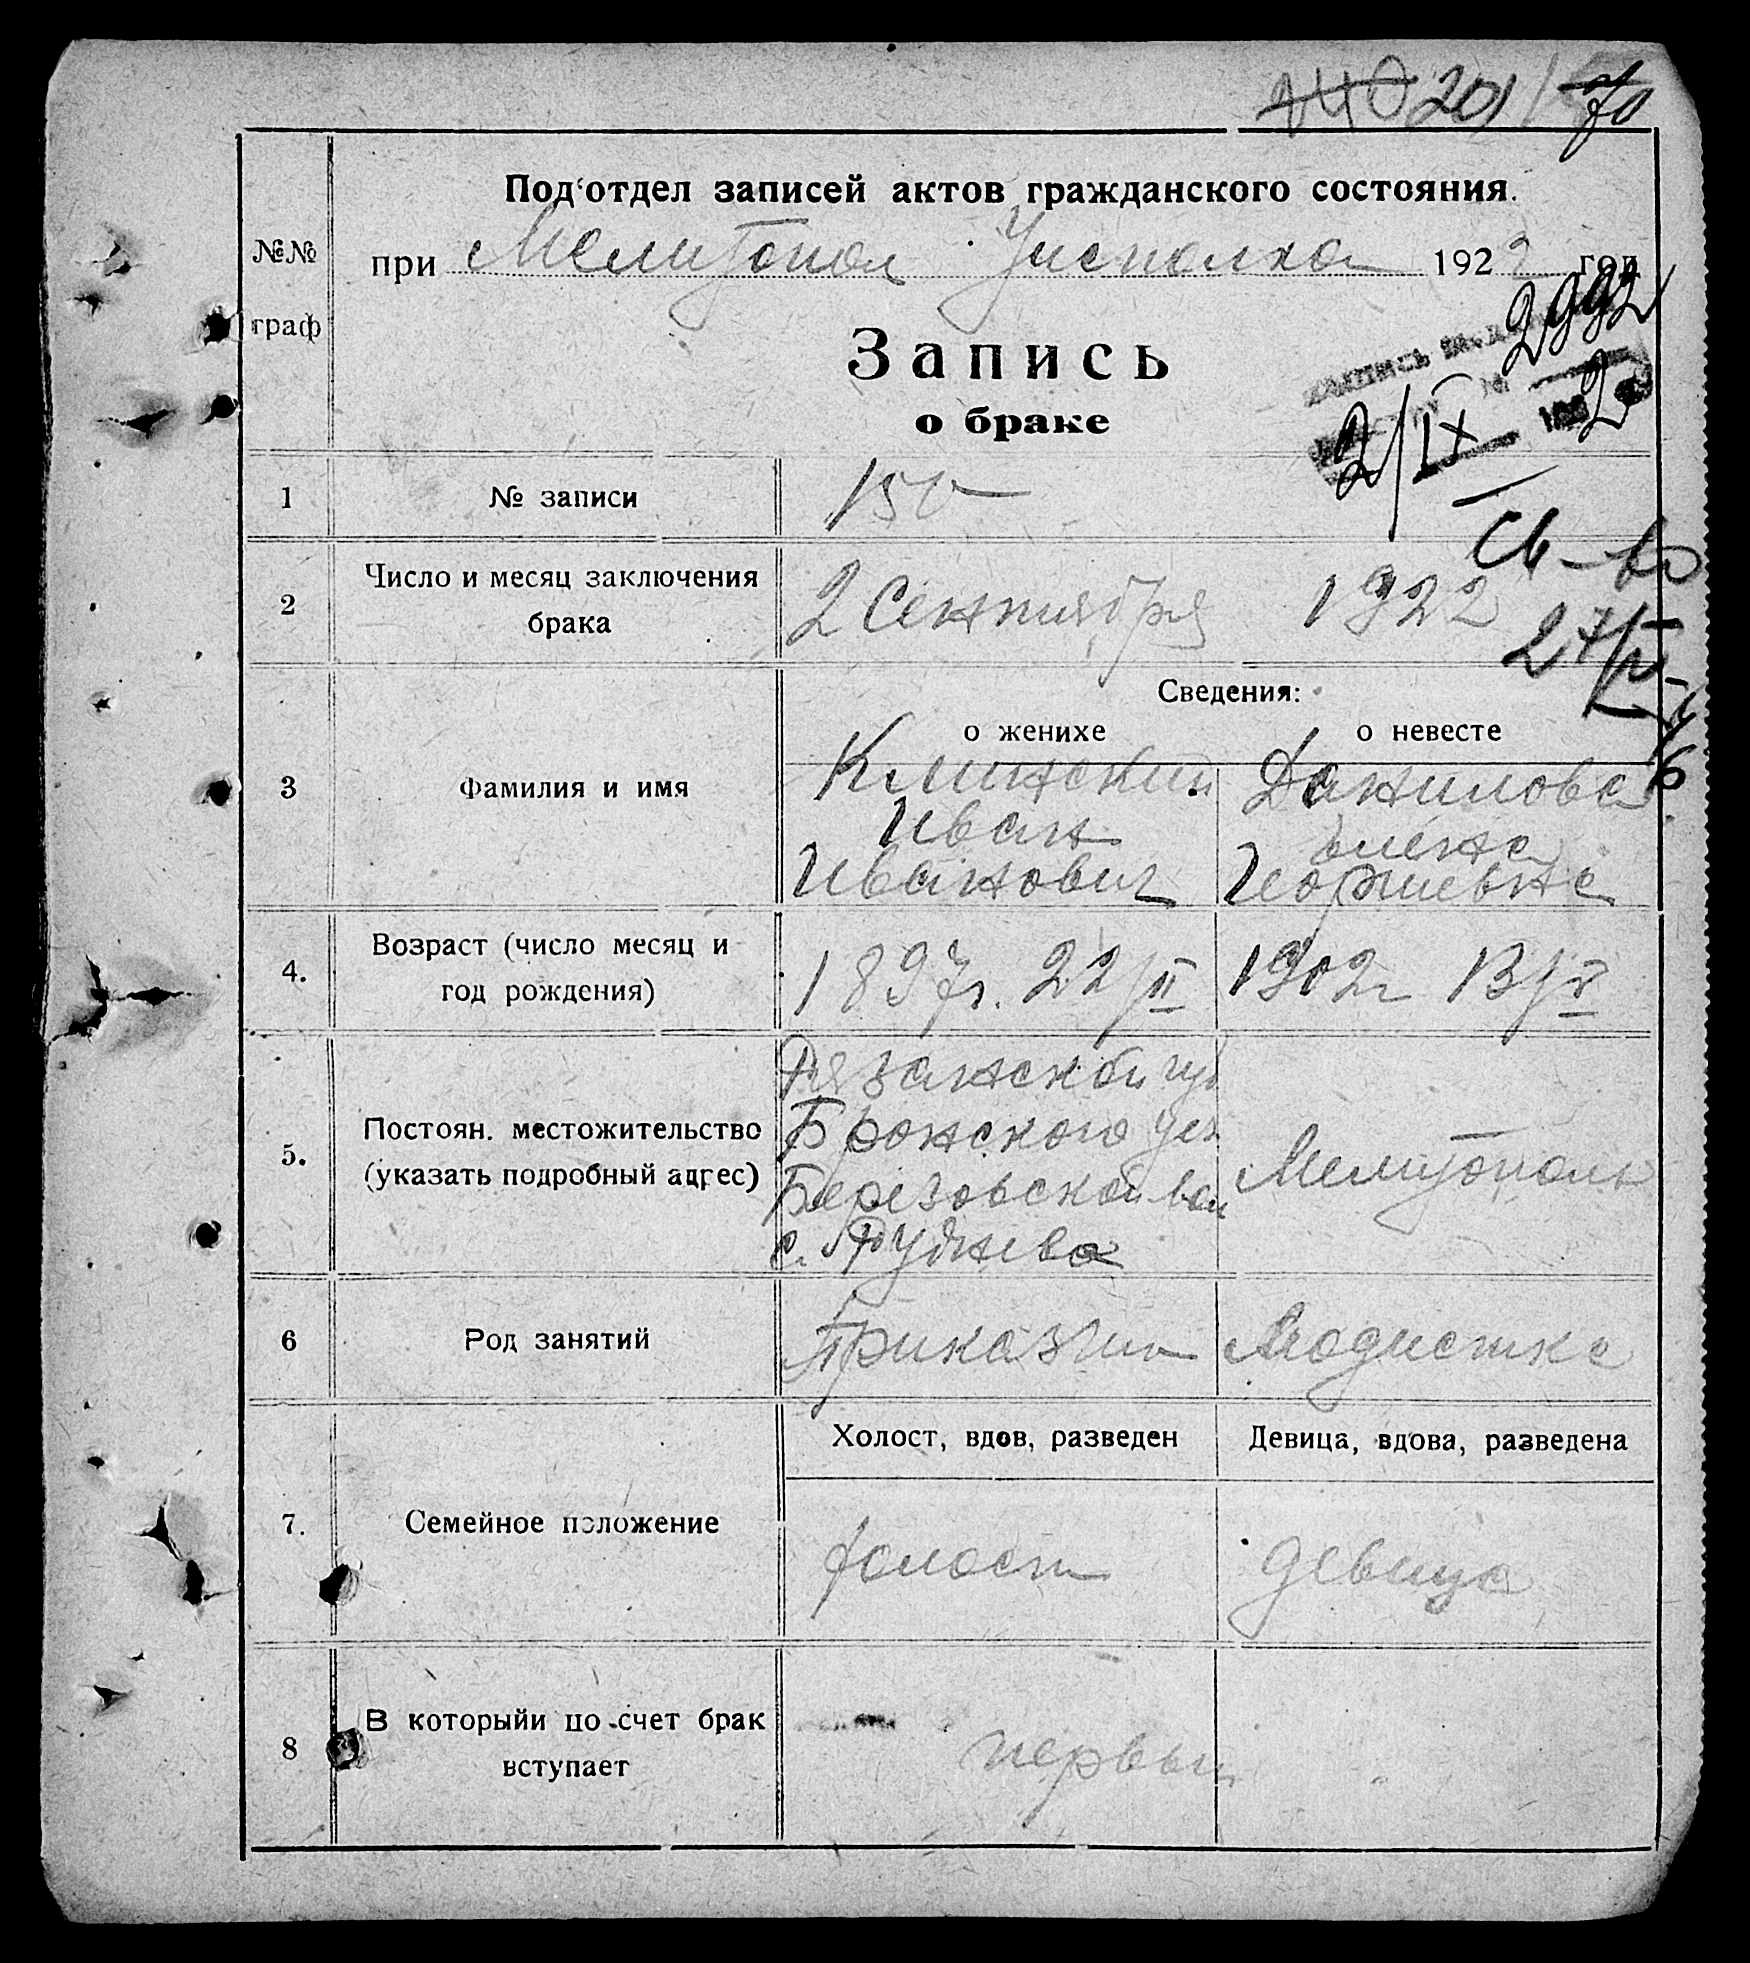 201
70
Под'отдел записей актов гражданского состояния.
№№ граф
при Мелитопол Уисполкоа 1922 год
2992
Запись
о браке
2/IX 1922
1 № записи 150
Св-во
2 Число и месяц заключения брака 2 Сентября 1922
27/
Сведения:
о женихе о невесте
3 Фамилия и имя
Клинский Данилова
Иван Елена
Иванович Георгиевна
4. Возраст (число месяц и год рождения) 1897г. 22/II 1902г 13/V
5. Постоян. местожительство (указать подробный адрес)
Рязанской губ
Пронского уез.
Березовской вол
с. Руднева
Мелитополь
6 Род занятий Приказчик Модистка
Холост, вдов, разведен Девица, вдова, разведена
7. Семейное положение холост девица
8 В которыйи по счет брак вступает первый "